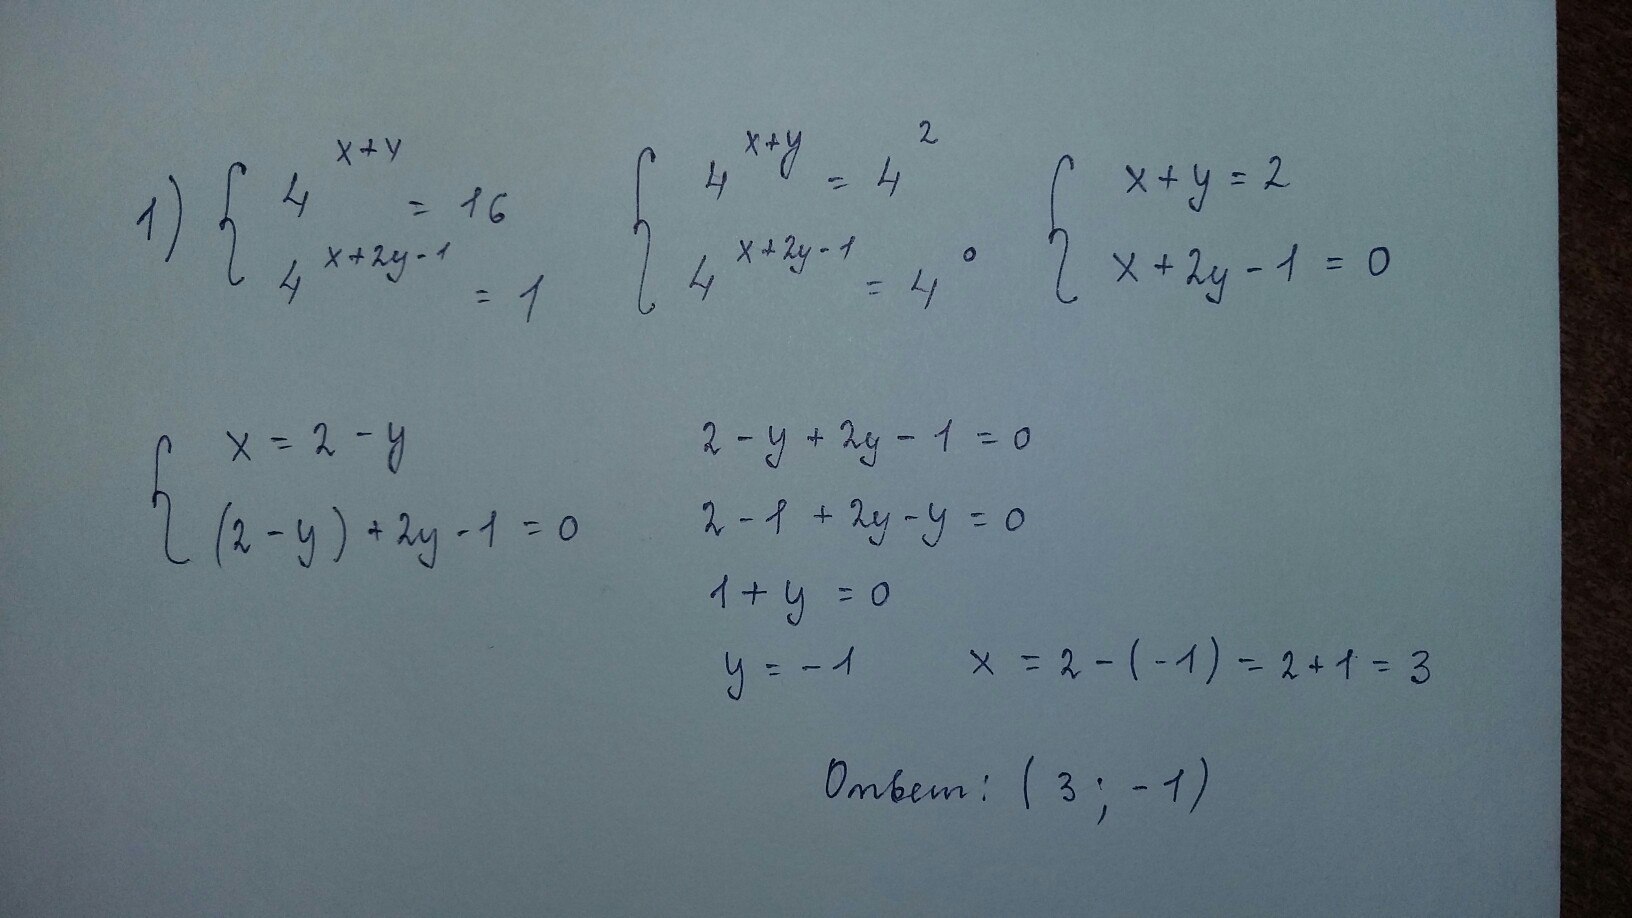 1) { 4^{x+y} = 16    { 4^{x+y} = 4^2    { x+y = 2
4^{x+2y-1} = 1    4^{x+2y-1} = 4^0    x+2y-1 = 0
{ x = 2-y
(2-y)+2y-1 = 0
2-y+2y-1 = 0
2-1+2y-y = 0
1+y = 0
y = -1    x = 2-(-1) = 2+1 = 3
Ответ: (3; -1)